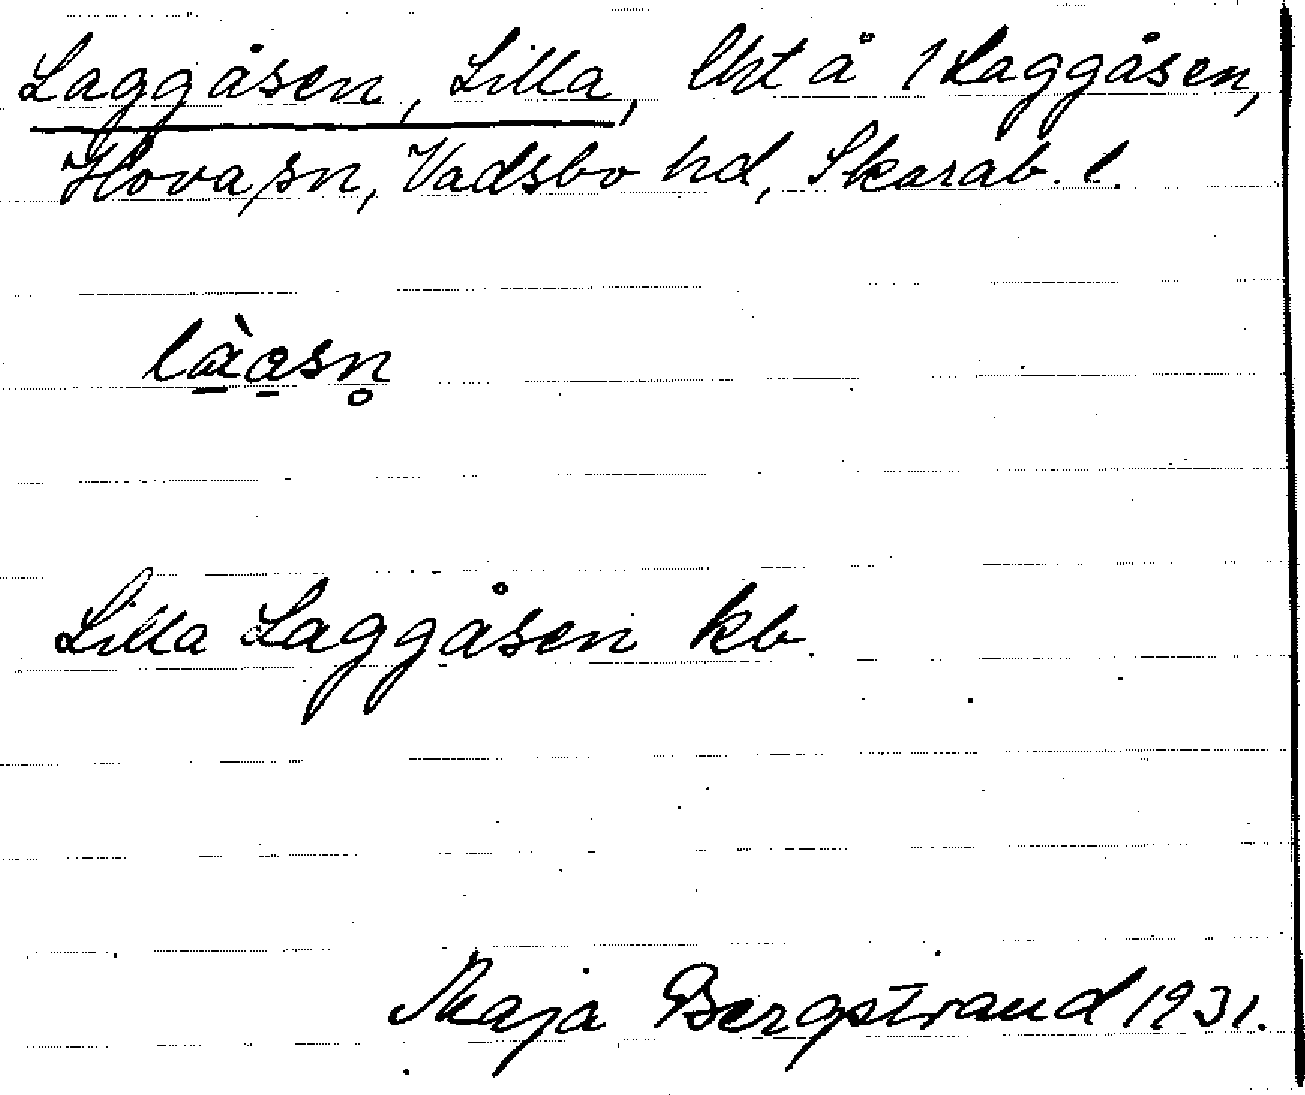 Laggåsen, Lilla, lht å 1 Laggåsen,
Hova sn, Vadsbo hd, Skarab. l.
là̱a̱sn̥
Lilla Laggåsen kb.
Maja Bergstrand 1931.